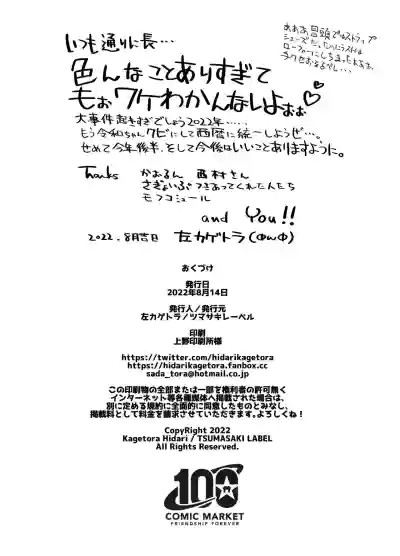 いつも通りに長…
色んなことありすぎて
もぉワケわかんないよぉぉ♡
大事件起きすぎでしょう2022年……
もう令和ちゃんクビにして西暦に統一しようぜ…。
せめて今年後半、そして今後はいいことありますように。
Thanks かおるん 西村さん
さぎょいぷつきあってくれたんたち
モフコミュール
and You!!
2022.8月吉日 左カゲトラ(ΦωΦ)
おくづけ
発行日
2022年8月14日
発行人/発行元
左カゲトラ/ツマサキレーベル
印刷
上野印刷所様
https://twitter.com/hidarikagetora
https://hidarikagetora.fanbox.cc
sada_tora@hotmail.co.jp
この印刷物の全部または一部を権利者の許可無く
インターネット等各種媒体へ掲載された場合は、
別に定める規約に全面的に同意したものとみなし、
掲載料として料金を請求させていただきます。よろしくね!
CopyRight 2022
Kagetora Hidari / TSUMASAKI LABEL
All Rights Reserved.
100
COMIC MARKET
FRIENDSHIP FOREVER